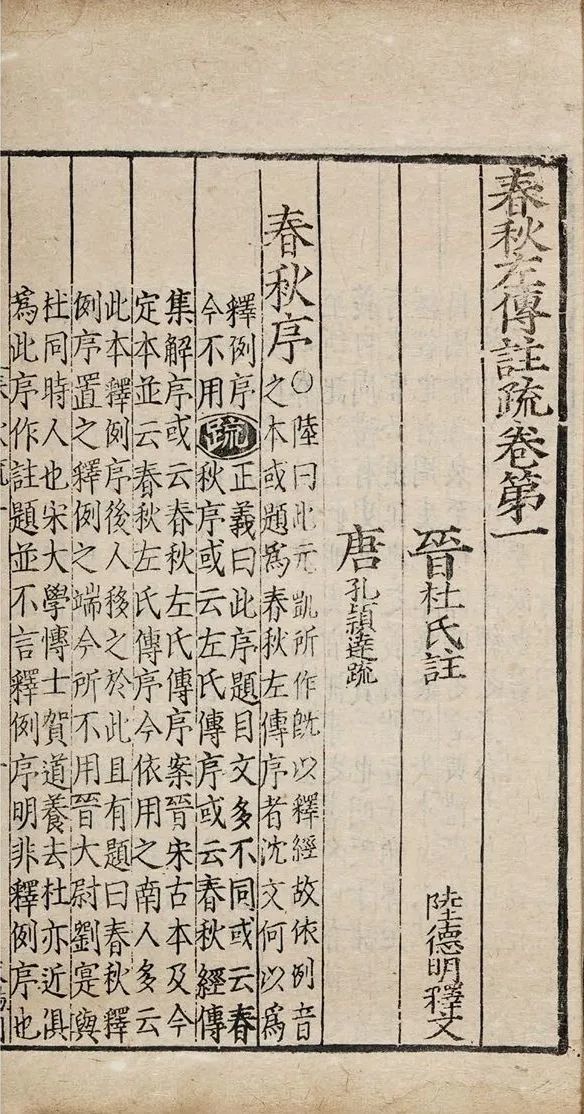 春秋左傳註疏卷第一
晉杜氏註 陸德明釋文
唐孔頴達疏
春秋序○陸曰此元凱所作旣以釋經故依例音
之本或題爲春秋左傳序者沈文何以爲
釋例序
今不用
疏正義曰此序題目文多不同或云春
秋序或云左氏傳序或云春秋經傳
集解序或云春秋左氏傳序案晉宋古本及今
定本並云春秋左氏傳序今依用之南人多云
此本釋例序後人移之於此且有題曰春秋釋
例序置之釋例之端今所不用晉大尉劉寔與
杜同時人也宋大學慱士賀道養去杜亦近俱
爲此序作註題並不言釋例序明非釋例序也